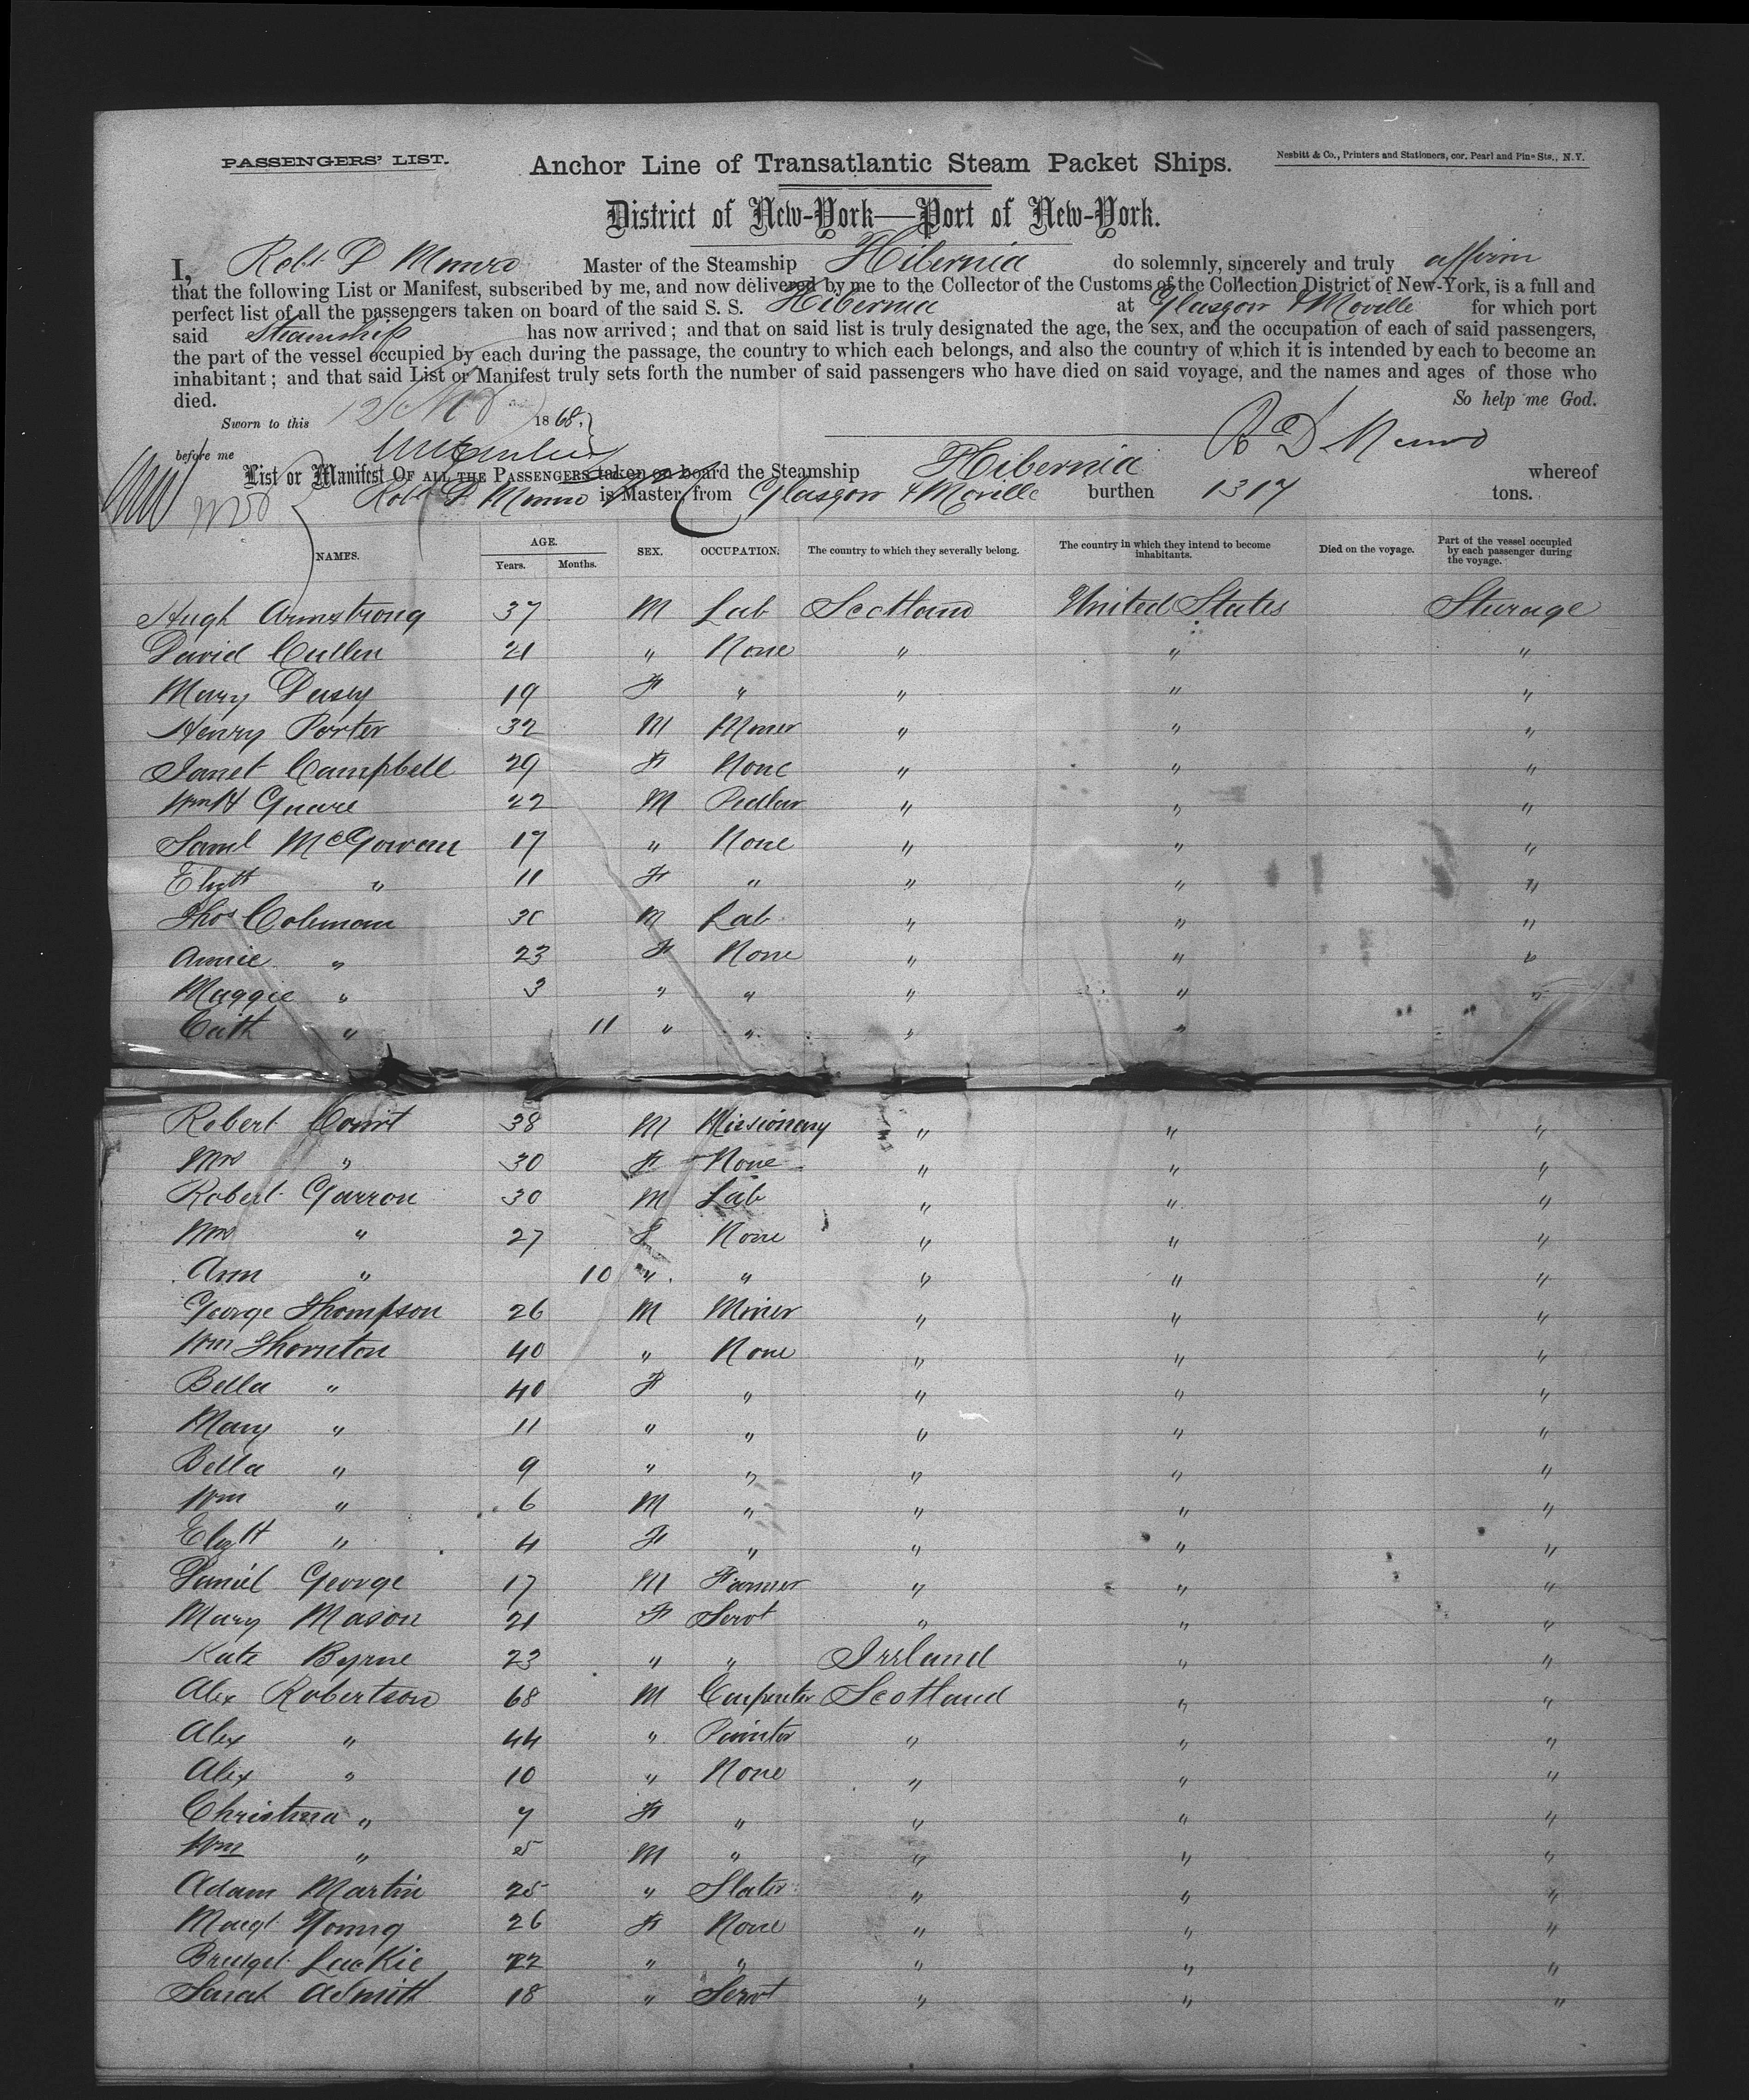 PASSENGERS' LIST.
Anchor Line of Transatlantic Steam Packet Ships.
Nesbitt & Co., Printers and Stationers, cor. Pearl and Pine Sts., N.Y.
District of New-York—Port of New-York.
I, Robt D Munro Master of the Steamship Hibernia do solemnly, sincerely and truly affirm
that the following List or Manifest, subscribed by me, and now delivered by me to the Collector of the Customs of the Collection District of New-York, is a full and
perfect list of all the passengers taken on board of the said S. S. Hibernia at Glasgow & Moville for which port
said Steamship has now arrived; and that on said list is truly designated the age, the sex, and the occupation of each of said passengers,
the part of the vessel occupied by each during the passage, the country to which each belongs, and also the country of which it is intended by each to become an
inhabitant; and that said List or Manifest truly sets forth the number of said passengers who have died on said voyage, and the names and ages of those who
died. So help me God.
Sworn to this 12 1868.
before me R D Munro
List or Manifest OF ALL THE PASSENGERS taken on board the Steamship Hibernia whereof
Robt D Munro is Master, from Glasgow & Moville burthen 1317 tons.
NAMES. AGE. Years. Months. SEX. OCCUPATION. The country to which they severally belong. The country in which they intend to become inhabitants. Died on the voyage. Part of the vessel occupied by each passenger during the voyage.
Hugh Armstrong 37 M Lab Scotland United States Sturage
David Cullen 21 " None " " "
Mary Dasey 19 F " " " "
Henry Porter 32 M Miner " " "
Janet Campbell 29 F None " " "
Wm H Guare 22 M Pedlar " " "
Saml McGowan 17 " None " " "
Elizth " 11 F " " " "
Thos Coleman 30 M Lab " " "
Annie " 23 F None " " "
Maggie " 3 " " " " "
Cath " 11 " " " "
Robert Court 38 M Missionary " " "
Mrs " 30 F None " " "
Robert Garron 30 M Lab " " "
Mrs " 27 F None " " "
Ann " 10 " " " " "
George Thompson 26 M Miner " " "
Wm Thornton 40 " None " " "
Bella " 40 F " " " "
Mary " 11 " " " " "
Bella " 9 " " " " "
Wm " 6 M " " " "
Elizth " 4 F " " " "
Daniel George 17 M Farmer " " "
Mary Mason 21 F Servt " " "
Kate Byrne 23 " " Irrland " "
Alex Robertson 68 M Carpenter Scotland " "
Alex " 44 " Painter " " "
Alex " 10 " None " " "
Christina " 7 F " " " "
Wm " 5 M " " " "
Adam Martin 25 " Slater " " "
Margt Young 26 F None " " "
Bridget Luckie 22 " " " " "
Sarah 18 " Servt " " "